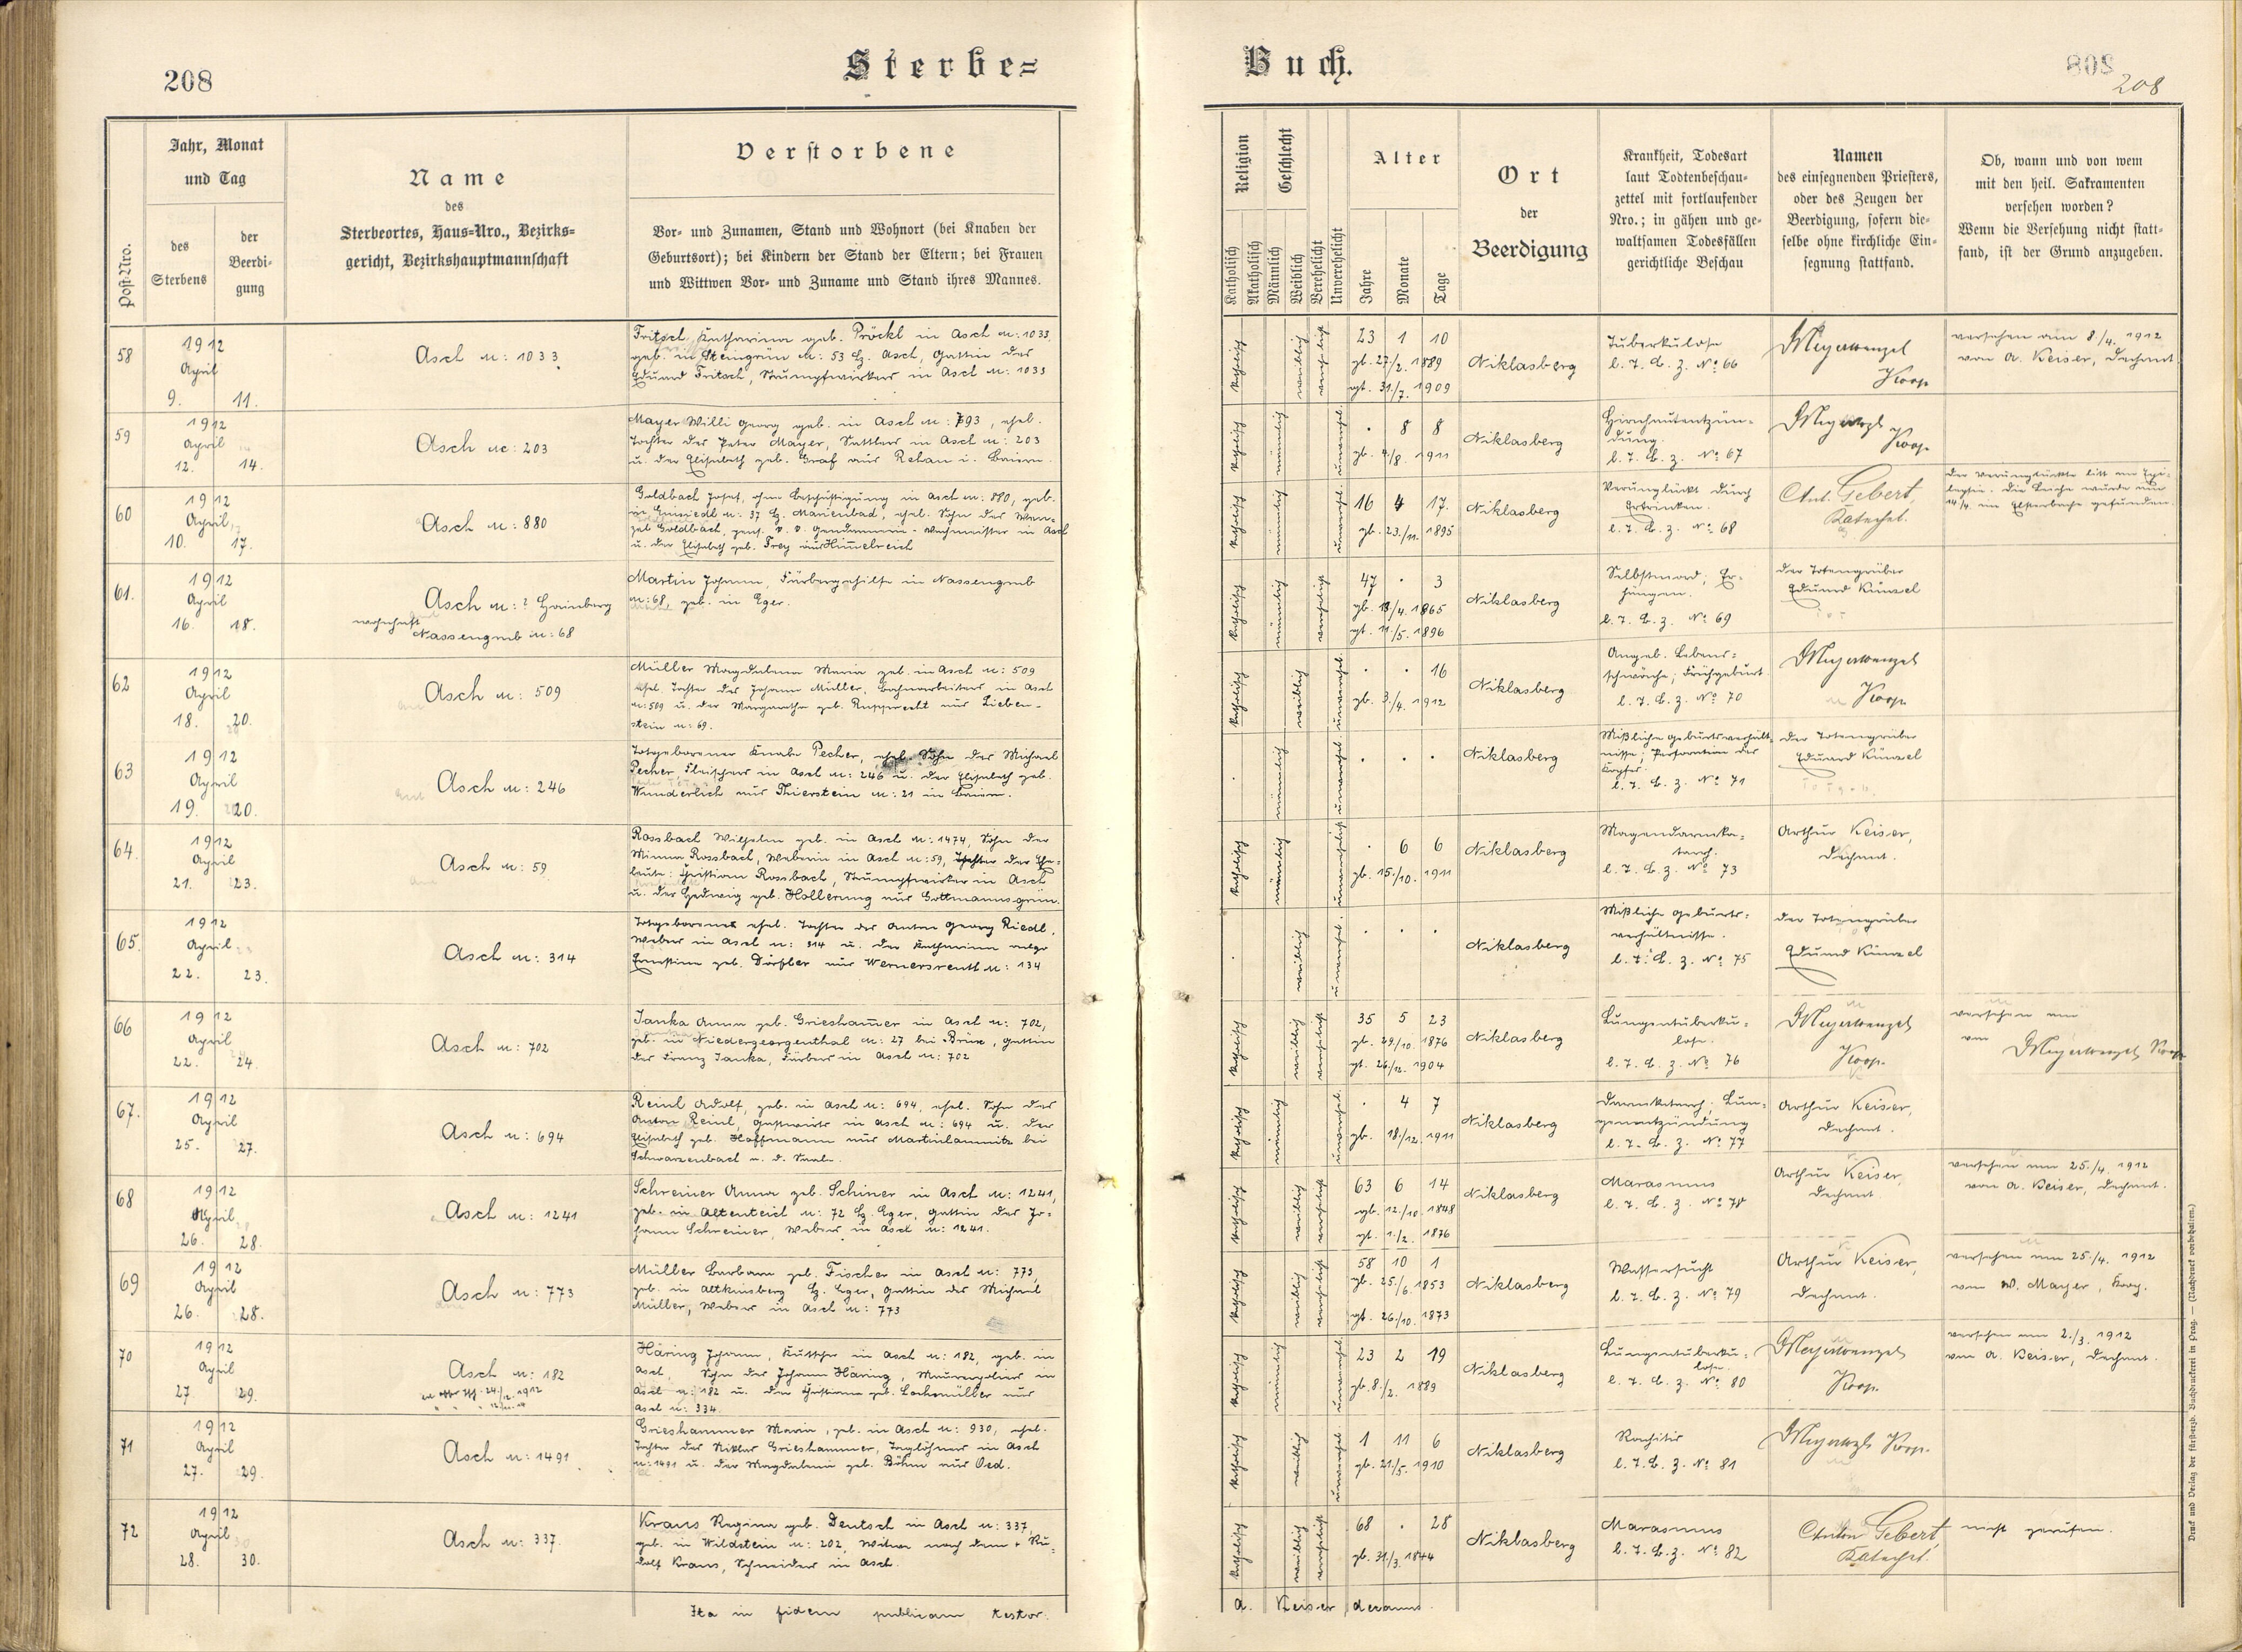 208
Sterbe=
Buch.
208
Post-Nro.
Jahr, Monat
und Tag
des
Sterbens
der
Beerdi=
gung
Name
des
Sterbeortes, Haus=Nro., Bezirks=
gericht, Bezirkshauptmannschaft
Verstorbene
Vor= und Zunamen, Stand und Wohnort (bei Knaben der
Geburtsort); bei Kindern der Stand der Eltern; bei Frauen
und Wittwen Vor= und Zuname und Stand ihres Mannes.
Religion
Katholisch
Akatholisch
Geschlecht
Männlich
Weiblich
Verehelicht
Unverehelicht
Alter
Jahre
Monate
Tage
Ort
der
Beerdigung
Krankheit, Todesart
laut Todtenbeschau=
zettel mit fortlaufender
Nro.; in gähen und ge=
waltsamen Todesfällen
gerichtliche Beschau
Namen
des einsegnenden Priesters,
oder des Zeugen der
Beerdigung, sofern die=
selbe ohne kirchliche Ein=
segnung stattfand.
Ob, wann und von wem
mit den heil. Sakramenten
versehen worden?
Wenn die Versehung nicht statt=
fand, ist der Grund anzugeben.
58
1912
April
9. 11.
Asch n: 1033
Fritsch Katharina geb. Pröckl in Asch n: 1033
geb. in Steingrün n: 53 Bz. Asch, Gattin des
Eduard Fritsch, Strumpfwirkers in Asch n: 1033
katholisch weiblich verehelicht
23 1 10
gb. 27/2. 1889
gt. 31/7. 1909
Niklasberg
Tuberkulose
l. T. B. z. No 66
Meyerwenzel
Koop.
versehen am 8/4. 1912
von A. Keiser, Dechant
59
1912
April
12. 14.
Asch n: 203
Mayer Willi Georg geb. in Asch n: 793, ehel.
Tochter des Peter Mayer, Sattlers in Asch n: 203
u. der Elisabeth geb. Graf aus Rehau i. Baiern.
katholisch männlich unverehel.
. 8 8
gb. 4/8. 1911
Niklasberg
Hirnhautentzün=
dung.
l. T. B. z. No 67
Koop.
60
1912
April
10. 17.
Asch n: 880
Goldbach Josef, ohne Beschäftigung in Asch n: 880, geb.
in Einsiedl n: 37 Bz. Marienbad, ehel. Sohn des Wen=
zel Goldbach, pens. k. k. Gendarmerie-Wachmeister in Asch
u. der Elisabeth geb. Frey aus Himmelreich
katholisch männlich unverehel.
16 4 17.
gb. 23./11. 1895
Niklasberg
Verunglückt durch
Ertrinken.
l. T. B. z. No 68
Ant. Gebert,
Katechet.
Der Verunglückte litt an Epi=
lepsie. Die Leiche wurde am
14/4. im Elsterbache gefunden.
61.
1912
April
16. 18.
Asch n: ? Hainberg
wohnhaft
Nassengrub n: 68
Martin Johann, Färbergehilfe in Nassengrub
n: 68, geb. in Eger.
katholisch männlich verehelicht
47 . 3
gb. 13/4. 1865
gt. 11/5. 1896
Niklasberg
Selbstmord, Er=
hängen.
l. T. B. z. No 69
Der Totengräber
Eduard Künzel
62
1912
April
18. 20.
Asch n: 509
Müller Magdalena Maria geb. in Asch n: 509
ehel. Tochter des Johann Müller, Bahnarbeiters in Asch
n: 509 u. der Margaretha geb. Rupprecht aus Lieben=
stein n: 69.
katholisch weiblich unverehel.
. . 16
gb. 3./4. 1912
Niklasberg
Angeb. Lebens=
schwäche; Frühgeburt
l. T. B. z. No 70
Meyerwenzel
Koop.
63
1912
April
19. 20.
Asch n: 246
Totgeborener Knabe Pecher, ehel. Sohn des Michael
Pecher, Fleischers in Asch n: 246 u. der Elisabeth geb.
Wunderlich aus Thierstein n: 21 in Baiern.
. männlich unverehel.
. . .
Niklasberg
Mißliche Geburtsverhält=
nisse; Perforation des
Kopfes.
l. T. B. z. No 71
Der Totengräber
Eduard Künzel
64.
1912
April
21. 23.
Asch n: 59
Rossbach Wilhelm geb. in Asch n: 1474, Sohn der
Minna Rossbach, Weberin in Asch n: 59, Tochter der Ehe=
leute: Christian Rossbach, Strumpfwirker in Asch
u. der Hedwig geb. Hollerung aus Gottmannsgrün.
katholisch männlich unverehelicht
. 6 6
gb. 15./10. 1911
Niklasberg
Magendarmka=
tarrh.
l. T. B. z. No 73
Arthur Keiser,
Dechant.
65.
1912
April
22. 23.
Asch n: 314
Totgeborenes ehel. Tochter des Anton Georg Riedl,
Weber in Asch n: 314 u. der Katharina
Ernestine geb. Dörfler aus Wernersreuth n: 134
. weiblich unverehel.
. . .
Niklasberg
Mißliche Geburts=
verhältnisse.
l. T. B. z. No 75
Der Totengräber
Eduard Künzel
66
1912
April
22. 24.
Asch n: 702
Janka Anna geb. Grieshammer in Asch n: 702,
geb. in Niedergeorgenthal n: 27 bei Brüx, Gattin
des Franz Janka, Färbers in Asch n: 702
katholisch weiblich verehelicht
35 5 23
gb. 29/10. 1876
gt. 26/12. 1904
Niklasberg
Lungentuberku=
lose.
l. T. B. z. No 76
Meyerwenzel
Koop.
versehen am
von Meyerwenzel Koop.
67.
1912
April
25. 27.
Asch n: 694
Reinl Adolf, geb. in Asch n: 694, ehel. Sohn des
Anton Reinl, Gastwirts in Asch n: 694 u. der
Elisabeth geb. Hoffmann aus Martinlamitz bei
Schwarzenbach a. d. Saale.
katholisch männlich unverehel.
. 4 7
gb. 18./12. 1911
Niklasberg
Darmkatarrh, Lun=
genentzündung
l. T. B. z. No 77
Arthur Keiser,
Dechant.
68
1912
April
26. 28.
Asch n: 1241
Schreiner Anna geb. Schiner in Asch n: 1241,
geb. in Altenteich n: 72 Bz. Eger, Gattin des Jo=
hann Schreiner, Webers in Asch n: 1241.
katholisch weiblich verehelicht
63 6 14
gb. 12./10. 1848
gt. 1./2. 1876
Niklasberg
Marasmus
l. T. B. z. No 78
Arthur Keiser,
Dechant
versehen am 25./4. 1912
von A. Keiser, Dechant.
69
1912
April
26. 28.
Asch n: 773
Müller Barbara geb. Fischer in Asch n: 773,
geb. in Altkinsberg Bz. Eger, Gattin des Michael
Müller, Webers in Asch n: 773
katholisch weiblich verehelicht
58 10 1
gb. 25./6. 1853
gt. 26./10. 1873
Niklasberg
Wassersucht
l. T. B. z. No 79
Arthur Keiser,
Dechant.
versehen am 25./4. 1912
von W. Mayer, Koop.
70
1912
April
27 29.
Asch n: 182
Häring Johann, Kutscher in Asch n: 182, geb. in
Asch, Sohn des Johann Häring, Maurerpolier in
Asch n: 182 u. der Christiana geb. Lochmüller aus
Asch n: 334.
katholisch männlich unverehel.
23 2 19
gb. 8./2. 1889
Niklasberg
Lungentuberku=
lose.
l. T. B. z. No 80
Meyerwenzel
Koop.
versehen am 2./3. 1912
von A. Keiser, Dechant.
71
1912
April
27. 29.
Asch n: 1491
Grieshammer Maria, geb. in Asch n: 930, ehel.
Tochter des Niklas Grieshammer, Taglöhners in Asch
n: 1491 u. der Magdalena geb. Böhm aus Oed.
katholisch weiblich unverehel.
1 11 6
gb. 21/5. 1910
Niklasberg
Rachitis
l. T. B. z. No 81
Koop.
72
1912
April
28. 30.
Asch n: 337.
Kraus Regina geb. Deutsch in Asch n: 337,
geb. in Wildstein n: 202, Witwe nach dem + Ru=
dolf Kraus, Schneiders in Asch.
katholisch weiblich verehelicht
68 . 28
gb. 31/3. 1844
Niklasberg
Marasmus
l. T. B. z. No 82
Anton Gebert,
Katechet.
nicht gerufen.
Ita in fidem publicam testor.
A. Keiser, decanus.
Druck und Verlag der fürsterzb. Buchdruckerei in Prag. — (Nachdruck vorbehalten.)